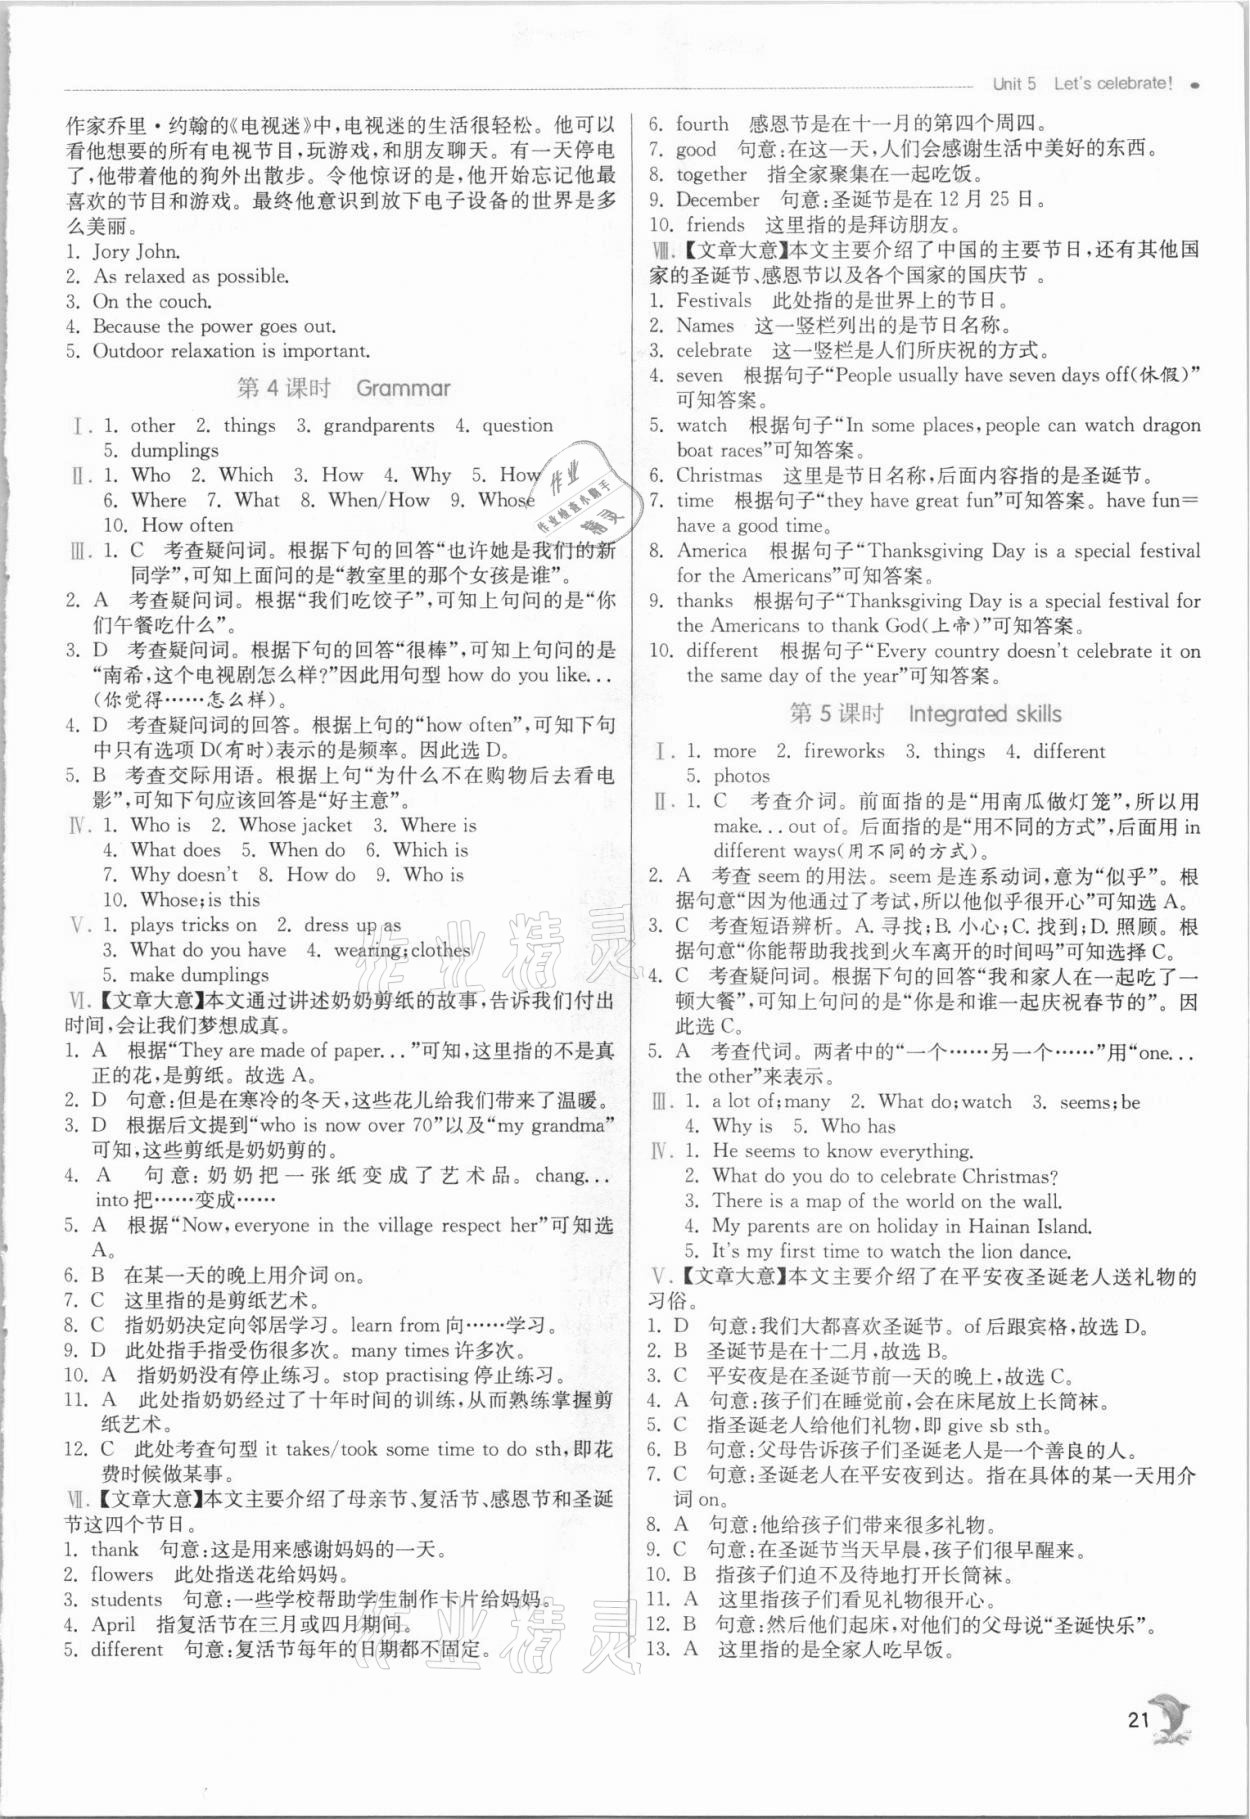 Unit 5 Let's celebrate!
作家乔里·约翰的《电视迷》中，电视迷的生活很轻松。他可以
看他想要的所有电视节目，玩游戏，和朋友聊天。有一天停电
了，他带着他的狗外出散步。令他惊讶的是，他开始忘记他最
喜欢的节目和游戏。最终他意识到放下电子设备的世界是多
么美丽。
1. Jory John.
2. As relaxed as possible.
3. On the couch.
4. Because the power goes out.
5. Outdoor relaxation is important.
第 4 课时 Grammar
Ⅰ. 1. other 2. things 3. grandparents 4. question
5. dumplings
Ⅱ. 1. Who 2. Which 3. How 4. Why 5. How
6. Where 7. What 8. When/How 9. Whose
10. How often
Ⅲ. 1. C 考查疑问词。根据下句的回答“也许她是我们的新
同学”，可知上面问的是“教室里的那个女孩是谁”。
2. A 考查疑问词。根据“我们吃饺子”，可知上句问的是“你
们午餐吃什么”。
3. D 考查疑问词。根据下句的回答“很棒”，可知上句问的是
“南希，这个电视剧怎么样？”因此用句型 how do you like...
(你觉得……怎么样)。
4. D 考查疑问词的回答。根据上句的“how often”，可知下句
中只有选项 D(有时)表示的是频率。因此选 D。
5. B 考查交际用语。根据上句“为什么不在购物后去看电
影”，可知下句应该回答是“好主意”。
Ⅳ. 1. Who is 2. Whose jacket 3. Where is
4. What does 5. When do 6. Which is
7. Why doesn't 8. How do 9. Who is
10. Whose;is this
Ⅴ. 1. plays tricks on 2. dress up as
3. What do you have 4. wearing;clothes
5. make dumplings
Ⅵ.【文章大意】本文通过讲述奶奶剪纸的故事，告诉我们付出
时间，会让我们梦想成真。
1. A 根据“They are made of paper...”可知，这里指的不是真
正的花，是剪纸。故选 A。
2. D 句意：但是在寒冷的冬天，这些花儿给我们带来了温暖。
3. D 根据后文提到“who is now over 70”以及“my grandma”
可知，这些剪纸是奶奶剪的。
4. A 句意：奶奶把一张纸变成了艺术品。chang...
into把……变成……
5. A 根据“Now, everyone in the village respect her”可知选
A。
6. B 在某一天的晚上用介词 on。
7. C 这里指的是剪纸艺术。
8. C 指奶奶决定向邻居学习。learn from 向……学习。
9. D 此处指手指受伤很多次。many times 许多次。
10. A 指奶奶没有停止练习。stop practising 停止练习。
11. A 此处指奶奶经过了十年时间的训练，从而熟练掌握剪
纸艺术。
12. C 此处考查句型 it takes/took some time to do sth，即花
费时候做某事。
Ⅶ.【文章大意】本文主要介绍了母亲节、复活节、感恩节和圣诞
节这四个节日。
1. thank 句意：这是用来感谢妈妈的一天。
2. flowers 此处指送花给妈妈。
3. students 句意：一些学校帮助学生制作卡片给妈妈。
4. April 指复活节在三月或四月期间。
5. different 句意：复活节每年的日期都不固定。
6. fourth 感恩节是在十一月的第四个周四。
7. good 句意：在这一天，人们会感谢生活中美好的东西。
8. together 指全家聚集在一起吃饭。
9. December 句意：圣诞节是在 12 月 25 日。
10. friends 这里指的是拜访朋友。
Ⅷ.【文章大意】本文主要介绍了中国的主要节日，还有其他国
家的圣诞节、感恩节以及各个国家的国庆节 。
1. Festivals 此处指的是世界上的节日。
2. Names 这一竖栏列出的是节日名称。
3. celebrate 这一竖栏是人们所庆祝的方式。
4. seven 根据句子“People usually have seven days off(休假)”
可知答案。
5. watch 根据句子“In some places, people can watch dragon
boat races”可知答案。
6. Christmas 这里是节日名称，后面内容指的是圣诞节。
7. time 根据句子“they have great fun”可知答案。have fun=
have a good time。
8. America 根据句子“Thanksgiving Day is a special festival
for the Americans”可知答案。
9. thanks 根据句子“Thanksgiving Day is a special festival for
the Americans to thank God(上帝)”可知答案。
10. different 根据句子“Every country doesn't celebrate it on
the same day of the year”可知答案。
第 5 课时 Integrated skills
Ⅰ. 1. more 2. fireworks 3. things 4. different
5. photos
Ⅱ. 1. C 考查介词。前面指的是“用南瓜做灯笼”，所以用
make...out of。后面指的是“用不同的方式”，后面用 in
different ways(用不同的方式)。
2. A 考查 seem 的用法。seem 是连系动词，意为“似乎”。根
据句意“因为他通过了考试，所以他似乎很开心”可知选 A。
3. C 考查短语辨析。A. 寻找；B. 小心；C. 找到；D. 照顾。根
据句意“你能帮助我找到火车离开的时间吗”可知选择 C。
4. C 考查疑问词。根据下句的回答“我和家人在一起吃了一
顿大餐”，可知上句问的是“你是和谁一起庆祝春节的”。因
此选 C。
5. A 考查代词。两者中的“一个……另一个……”用“one...
the other”来表示。
Ⅲ. 1. a lot of;many 2. What do;watch 3. seems;be
4. Why is 5. Who has
Ⅳ. 1. He seems to know everything.
2. What do you do to celebrate Christmas?
3. There is a map of the world on the wall.
4. My parents are on holiday in Hainan Island.
5. It's my first time to watch the lion dance.
Ⅴ.【文章大意】本文主要介绍了在平安夜圣诞老人送礼物的
习俗。
1. D 句意：我们大都喜欢圣诞节。of后跟宾格，故选 D。
2. B 圣诞节是在十二月，故选 B。
3. C 平安夜是在圣诞节前一天的晚上，故选 C。
4. A 句意：孩子们在睡觉前，会在床尾放上长筒袜。
5. C 指圣诞老人给他们礼物，即 give sb sth。
6. B 句意：父母告诉孩子们圣诞老人是一个善良的人。
7. C 句意：圣诞老人在平安夜到达。指在具体的某一天用介
词 on。
8. A 句意：他给孩子们带来很多礼物。
9. C 句意：在圣诞节当天早晨，孩子们很早醒来。
10. B 指孩子们迫不及待地打开长筒袜。
11. A 这里指孩子们看见礼物很开心。
12. B 句意：然后他们起床，对他们的父母说“圣诞快乐”。
13. A 这里指的是全家人吃早饭。
21
作业
作业检查小助手
精灵
作业精灵
作业精灵